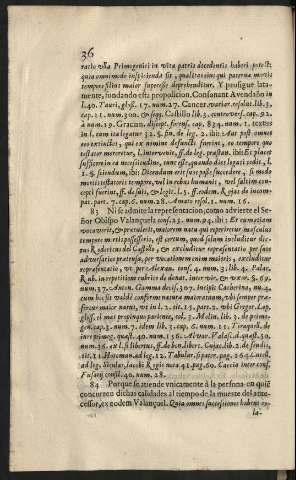 36
ratio vlla Primogeniti in vita patris decedentis haberi potest:
quia omnimode inspicienda sit, qualitas eius qui paternæ mortis
tempore filius maior superesse deprehenditur. Y prosigue lata-
mente, fundando esta proposicion. Consonant Avendaño in
l. 40. Tauri, gloss. 17. num. 27. Cancer. variar. resolut. lib. 3.
cap. 21. num. 300. & seqq. Castillo lib. 3. controvers. cap. 92.
num. 19. Gracian. discept. forens. cap. 834. num. 1. textus
in l. cum ita legatur 32. §. fin. de leg. 2. ibi: Aut post omnes
eos extinctos, qui ex nomine defuncti fuerint, eo tempore quo
testator moreretur, l. interdum, ff. de leg. præstan. ibi: Et placet
sufficere in ea necessitudine, tunc esse, quando dies legati cedit, l.
1. §. sciendum, ibi: Dicendum erit suos posse succedere, si modo
mortis testatoris tempore, vel in rebus humanis, vel saltim con-
cepti fuerint, ff. de suis, & legit. l. 13. ff. eodem. Rojas de incom-
pat. part. 7. cap. 6. num. 28. Amato resol. 1. num. 16.
83 Ni se admite la representacion, como advierte el Señor
Obispo Valançuela cons. 23. num. 94. ibi: Et cum etiam
vocaverit, & prætulerit, maiorem natu qui reperiretur masculus
tempore mortis possessoris, est certum, quod solum includitur dic-
tus Rodericus del Castillo, & excluditur repræsentatio per suos
adversarios prætensa, per vocationem enim maioris, excluditur
repræsentatio, vt per Alexan. cons. 4. num. 3. lib. 4. Palac.
Rub. in repetitione rubricæ de donat. inter vir. & vxor. §. 69.
num. 37. Anton. Gamma decis. 307. incipit Catherina, nu. 4.
cum hic sit validè conforme naturæ maioratuum, vbi semper præ-
fertur maior natus, vt in l. 2. tit. 15. part. 2. vbi Gregor. Lop.
gloss. el mas propinquo pariente, col. 3. Molin. lib. 3. de primo-
gen. cap. 3. num. 7. idem lib. 3. cap. 6. num. 11. Tiraquell. de
iure primog. quæst. 40. num. 136. Alvar. Valasc. d. quæst. 50.
num. 36. ex l. si libertus, ff. de bon. libert. Cujac. lib. 2. de feudis,
tit. 11. Hotoman. ad leg. 12. Tabular. 
ad leg. Siculas, Iacobi Regis nota 41. pag. 60. Caccia inter cons.
Fusarij consil. 40. num. 28.
84 Porque se atiende vnicamente à la persona en quiẽ
concurren dichas calidades al tiempo de la muerte del ante-
cessor, ex eodem Valançuel. Quia omnes successiones habent 
la-